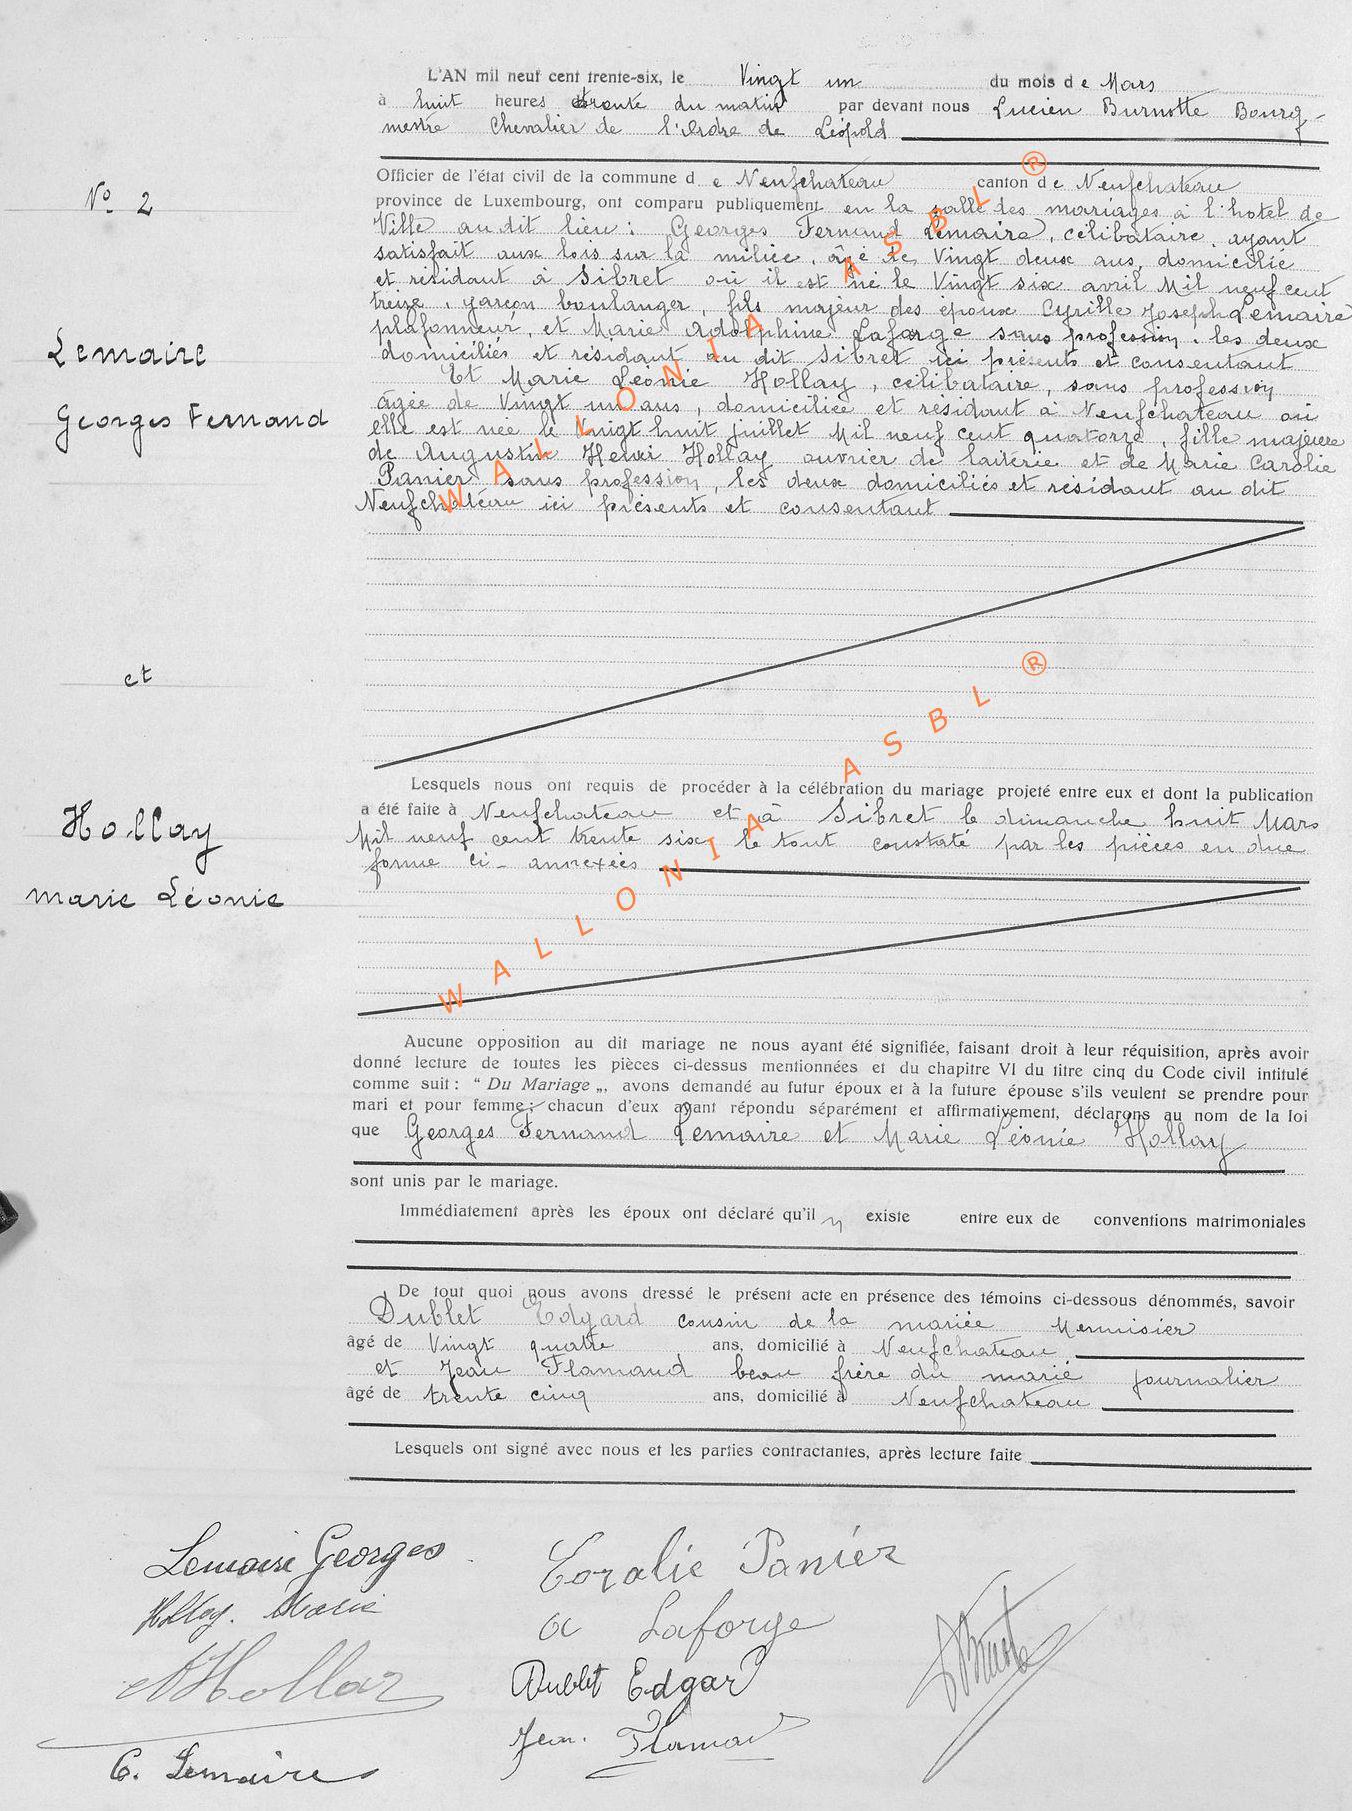 L'AN mil neuf cent trente-six, le Vingt un du mois de Mars
à huit heures trente du matin par devant nous Lucien Burnotte Bourg-
mestre Chevalier de l'Ordre de Léopold
Officier de l'état civil de la commune de Neufchateau canton de Neufchateau
province de Luxembourg, ont comparu publiquement en la salle des mariages à l'hotel de
Ville au dit lieu : Georges Fernand Lemaire, célibataire, ayant
satisfait aux lois sur la milice, âgé de Vingt deux ans, domicilié
et résidant à Sibret où il est né le Vingt six avril Mil neuf cent
treize, garçon boulanger, fils majeur des époux Cyrille Joseph Lemaire
plafonneur, et Marie Adolphine Laforge sans profession, les deux
domiciliés et résidant au dit Sibret ici présents et consentant
Et Marie Léonie Hollay, célibataire, sans profession
âgée de Vingt un ans, domiciliée et résidant à Neufchateau où
elle est née le Vingt huit juillet Mil neuf cent quatorze, fille majeure
de Augustin Henri Hollay ouvrier de laiterie et de Marie Carolie
Panier sans profession, les deux domiciliés et résidant au dit
Neufchateau ici présents et consentant
No 2
Lemaire
Georges Fernand
et
Hollay
Marie Léonie
Lesquels nous ont requis de procéder à la célébration du mariage projeté entre eux et dont la publication
a été faite à Neufchateau et à Sibret le dimanche huit Mars
Mil neuf cent trente six le tout constaté par les pièces en due
forme ci-annexées
Aucune opposition au dit mariage ne nous ayant été signifiée, faisant droit à leur réquisition, après avoir
donné lecture de toutes les pièces ci-dessus mentionnées et du chapitre VI du titre cinq du Code civil intitulé
comme suit : “ Du Mariage „, avons demandé au futur époux et à la future épouse s'ils veulent se prendre pour
mari et pour femme ; chacun d'eux ayant répondu séparément et affirmativement, déclarons au nom de la loi
que Georges Fernand Lemaire et Marie Léonie Hollay
sont unis par le mariage.
Immédiatement après les époux ont déclaré qu'il n existe entre eux de conventions matrimoniales
De tout quoi nous avons dressé le présent acte en présence des témoins ci-dessous dénommés, savoir
Dublet Edgard cousin de la mariée Menuisier
âgé de Vingt quatre ans, domicilié à Neufchateau
et Jean Flamand beau frère du marié journalier
âgé de trente cinq ans, domicilié à Neufchateau
Lesquels ont signé avec nous et les parties contractantes, après lecture faite
Lemaire Georges
Coralie Panier
Hollay. Marie
a Laforge
A Hollay
Dublet Edgard
Jean. Flamand
C. Lemaire
WALLONIA ASBL ®
WALLONIA ASBL ®